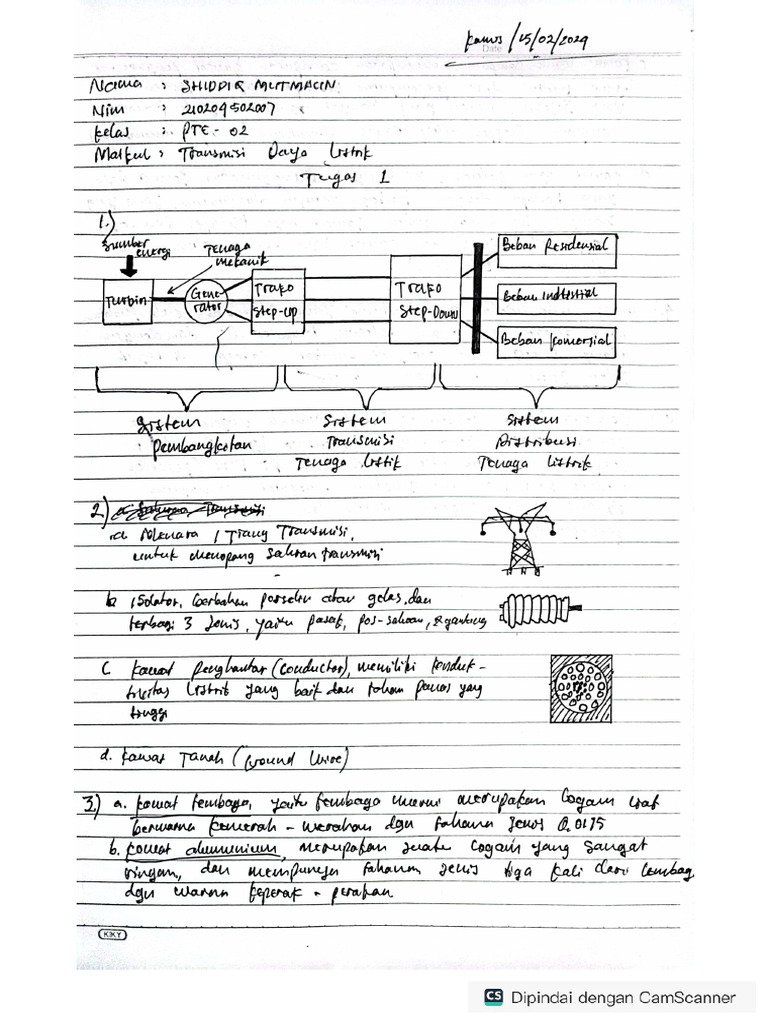 Kamis / 15/02/2024
Date
Nama : SHIDDIR MUTMAIN
Nim : 210209502007
Kelas : PTE - 02
Matkul : Transmisi Daya Listrik
Tugas 1
1.)
Sumber energi
Tenaga mekanik
Turbin
Gene-rator
Trafo Step-Up
Trafo Step-Down
Beban Residensial
Beban Indtistrial
Beban Komersial
Sistem Pembangkitan
Sistem Transmisi Tenaga Listik
Sistem Distribusi Tenaga Listrik
2.)
a Menara / Tiang Transmisi,
untuk menopang saluran transmisi
b. isolator, berbahan porselin atau gelas, dan
terbagi 3 jenis, yaitu pasak, pos-saluran, & gantung
C. Kawat penghantar (conductor), memiliki konduk-
tivitas listrik yang baik dan tahan panas yang
tinggi
d. Kawat Tanah (Ground Wire)
3.) a. Kawat tembaga, yaitu tembaga murni merupakan logam liat
berwarna kemerah - merahan dgn tahana jenis 0.0175
b. Kawat alumunium, merupakan suatu logam yang sangat
ringan, dan mempunyai tahanan jenis tiga kali dari tembaga
dgn warna keperak - perakan
KIKY
CS Dipindai dengan CamScanner